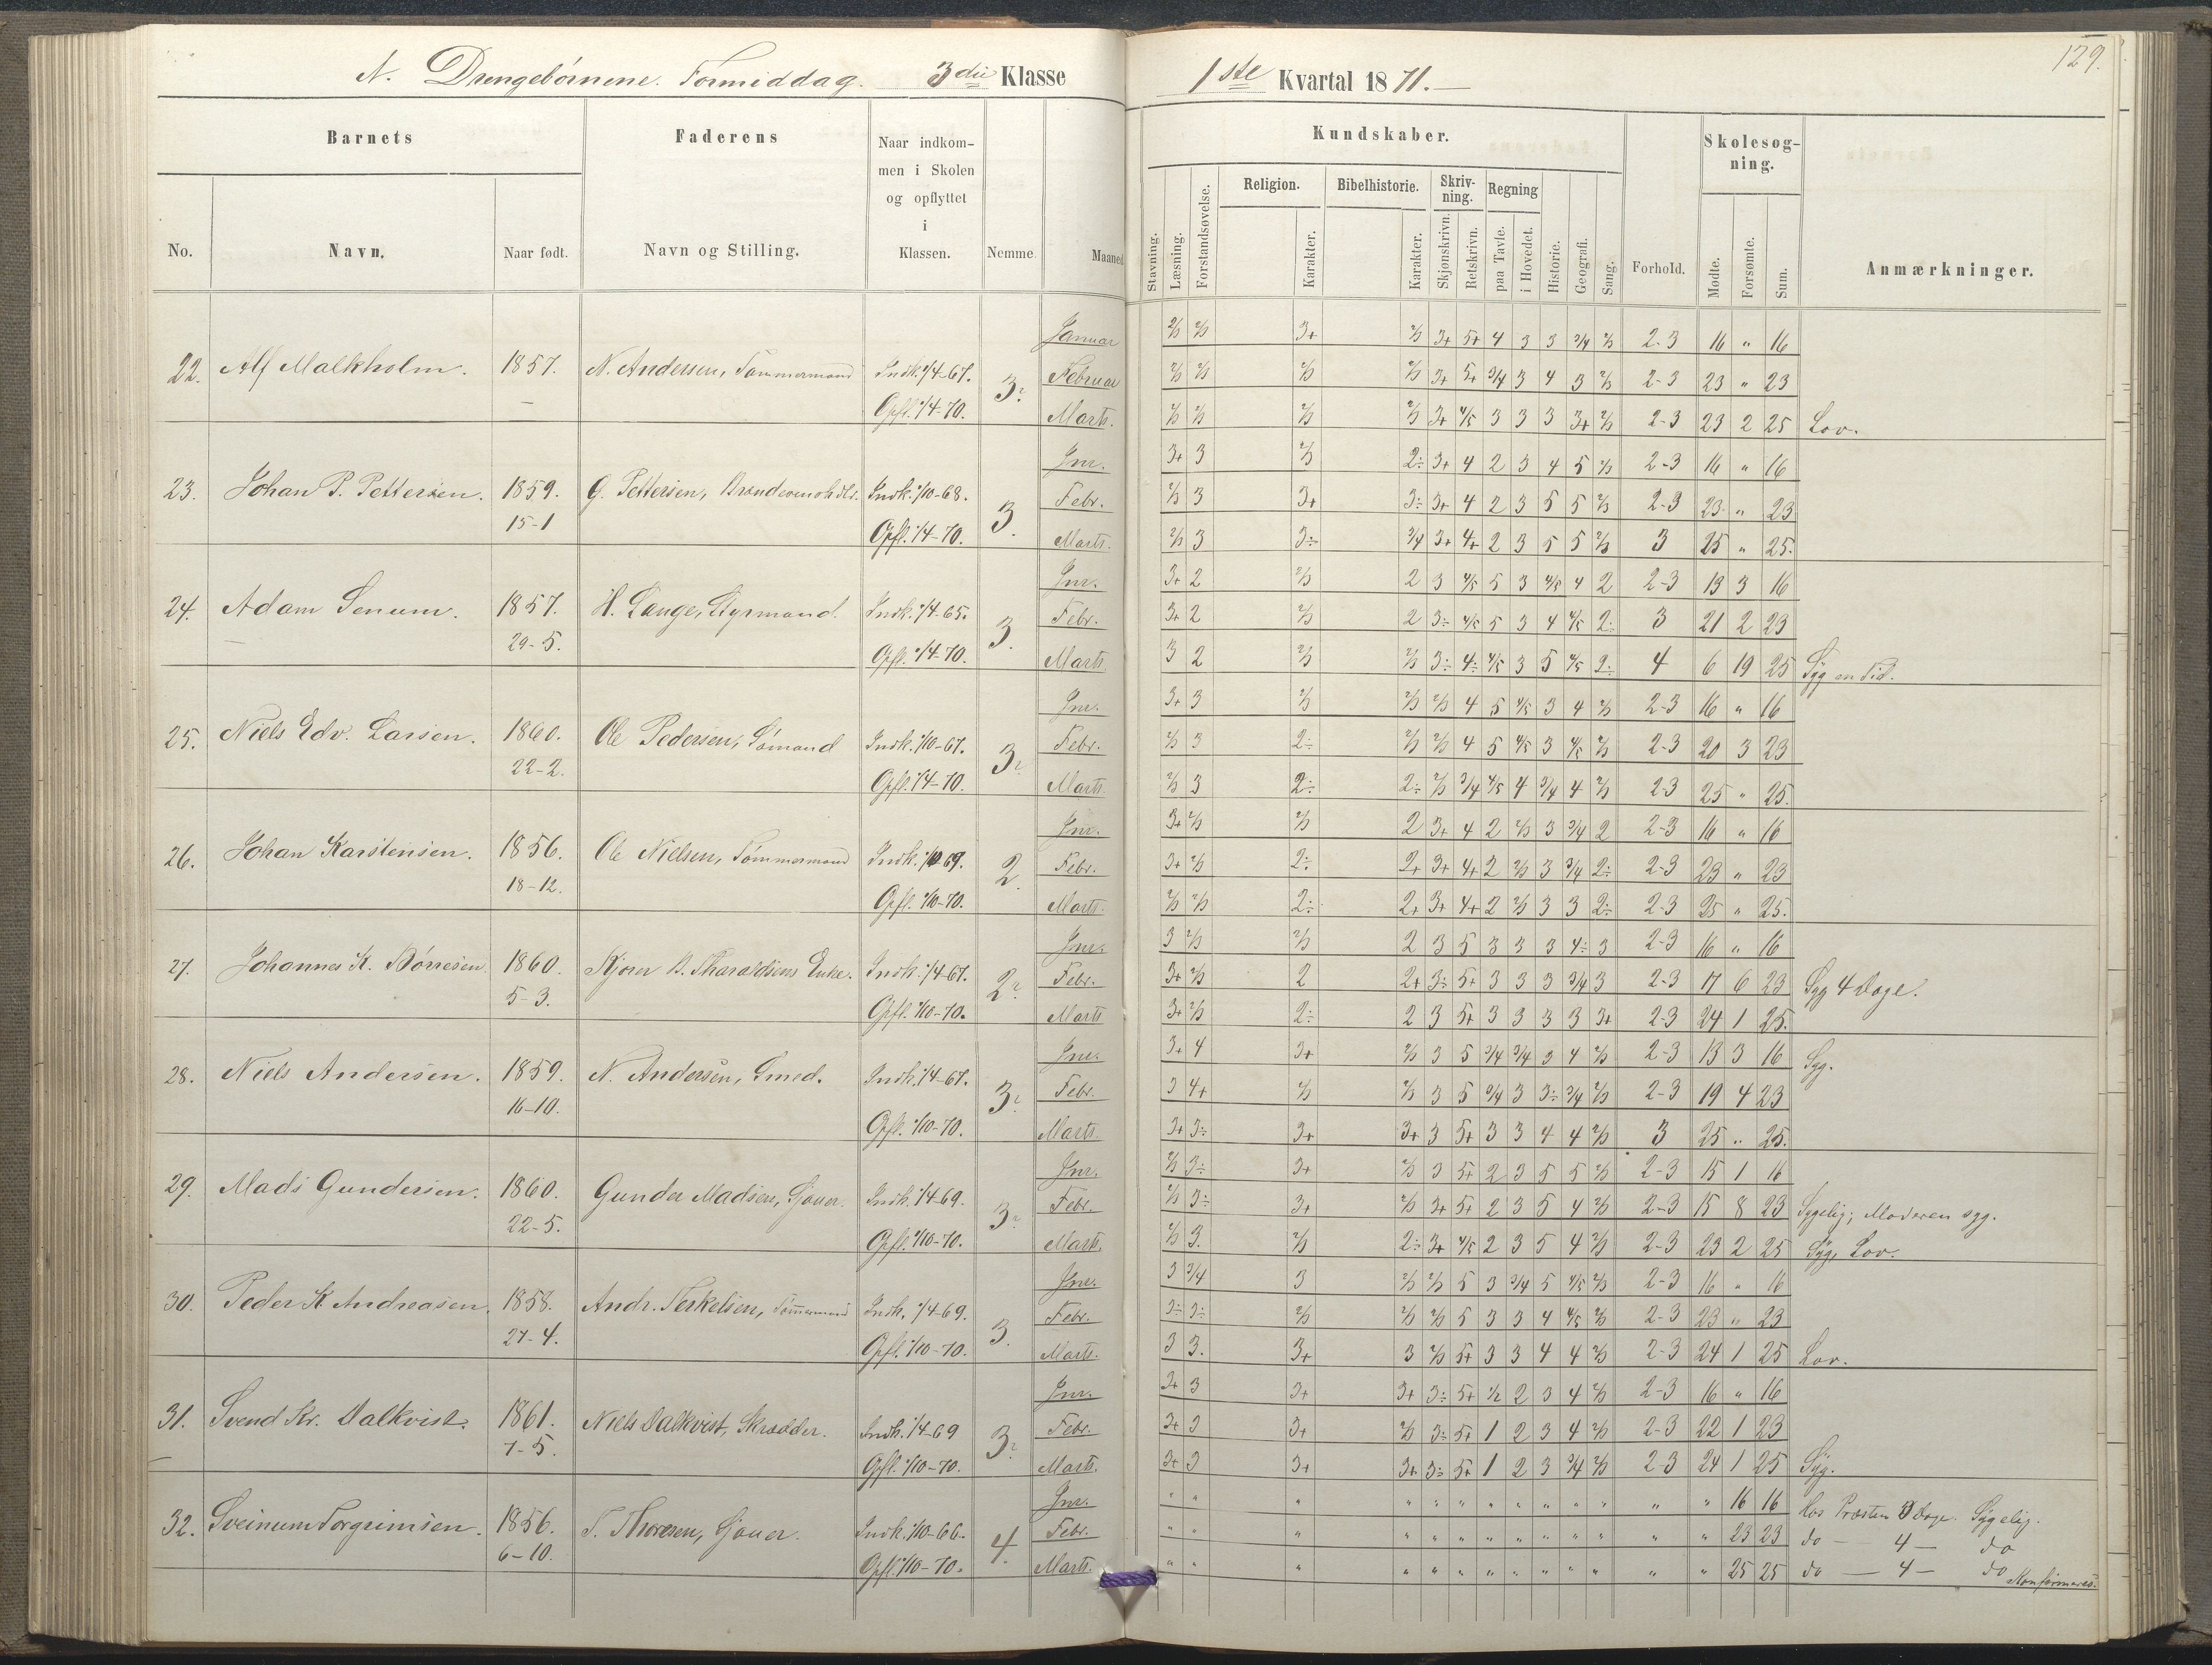 129.
N. Drengebørnene. Formiddag. 3die Klasse 1ste Kvartal 1871.
Barnets Faderens Naar indkommen i Skolen og opflyttet i Klassen. Nemme. Maaned
No. Navn. Naar født. Navn og Stilling.
Kundskaber. Forhold. Skolesøgning. Anmærkninger.
Stavning. Læsning. Forstandsøvelse. Religion. Karakter. Bibelhistorie. Karakter. Skrivning. Skjønskrivn. Retskrivn. Regning paa Tavle. i Hovedet. Historie. Geografi. Sang. Mødte. Forsømte. Sum.
Januar 2/3 2/3 3+ 2/3 3+ 5+ 4 3 3 3/4 2/3 2-3 16 " 16
22. Alf Malkholm. 1857. N. Andersen, Tømmermand Indk. 1/4-67. 3 Februar 2/3 2/3 2/3 2/3 3+ 5+ 3/4 3 4 3 2/3 2-3 23 " 23
Opfl. 1/4-70. Marts. 2/3 2/3 2/3 2/3 3+ 4/5 3 3 3 3+ 2/3 2-3 23 2 25 Lov.
Jnr. 3+ 3 2/3 2÷ 3+ 4 2 3 4 5 2/3 2-3 16 " 16
23. Johan P. Pettersen. 1859. G. Pettersen, Indk. 1/10-68. 3. Febr. 2/3 3 3+ 3÷ 3+ 4 2 3 5 5 2/3 2-3 23 " 23
15-1 Opfl. 1/4-70. Marts. 2/3 3 3÷ 3/4 3+ 4+ 2 3 5 5 2/3 3 25 " 25.
Jnr. 3+ 2 2/3 2 3 4/5 5 3 4/5 4 2 2-3 13 3 16
24. Adam Senum. 1857. H. Lange, Styrmand. Indk. 1/4-65. 3. Febr. 3+ 2 2/3 2 3÷ 4/5 5 3 4 4/5 2÷ 3 21 2 23
29-5. Opfl. 1/4-70. Marts 3 2 2/3 2/3 3÷ 4÷ 4/5 3 5 4/5 2÷ 4 6 19 25 Syg en Tid.
Jnr. 3+ 3 2/3 2/3 2/3 4 5 4/5 3 4 2/3 2-3 16 " 16
25. Niels Edv. Larsen. 1860. Ole Pedersen, Sømand Indk. 1/10-67. 3 Febr. 2/3 3 2÷ 2/3 2/3 4 5 4/5 3 4/5 2/3 2-3 20 3 23
22-2. Opfl. 1/4-70. Marts. 2/3 3 2÷ 2÷ 2/3 3/4 4/5 4 3/4 4 2/3 2-3 25 " 25.
Jnr. 3+ 2/3 2/3 2 3+ 4 2 2/3 3 3/4 2 2-3 16 " 16
26. Johan Karstensen. 1856. Ole Nielsen, Tømmermand Indk. 1/10 69. 2. Febr. 3+ 2/3 2÷ 2+ 3+ 4+ 2 2/3 3 3/4 2÷ 2-3 23 " 23
18-12. Opfl. 1/10-70. Marts. 2/3 2/3 2÷ 2+ 3+ 4+ 2 2/3 3 3 2÷ 2-3 25 " 25.
Jnr. 3 2/3 2/3 2 3 5 3 3 3 4÷ 3 2-3 16 " 16
27. Johannes K. Børresen. 1860. B. Tharaldsens Enke. Indk. 1/4-67. 2 Febr. 3+ 2/3 2 2+ 3÷ 5+ 3 3 3 3/4 3 2-3 17 6 23 Syg 4 Dage.
5-3. Opfl. 1/10-70. Marts 3+ 2/3 2÷ 2 3 5+ 3 3 3 3 3+ 2-3 24 1 25.
Jnr. 3+ 4 3+ 2/3 3 5 3/4 3/4 3 4 2/3 2-3 13 3 16 Syg.
28. Niels Andersen. 1859. N. Andersen, Smed. Indk. 1/4-67. 3 Febr. 3 4+ 2/3 2/3 3 5 3/4 3 3÷ 3/4 2/3 2-3 19 4 23
16-10. Opfl. 1/10-70. Marts. 3+ 3÷ 3+ 3+ 3 5+ 3 3 4 4 2/3 3 25 " 25.
Jnr. 2/3 3÷ 3+ 2/3 3 5+ 2 3 5 5 2/3 2-3 15 1 16
29. Mads Gundersen. 1860. Gunder Madsen, Indk. 1/4 69. 3 Febr. 2/3 3÷ 3+ 2/3 3+ 5+ 2 3 5 4 2/3 2-3 15 8 23 Sygelig; Moderen syg.
22-5. Opfl. 1/10-70. Marts. 2/3 3. 2/3 2÷ 3+ 4/5 2 3 5 4 2/3 2-3 23 2 25 Syg, Lov.
Jnr. 3 3/4 3 2/3 2/3 5 3 3/4 5 4/5 2/3 2-3 16 " 16
30. Peder K. Andreasen. 1858. Andr. Terkelsen, Tømmermand Indk. 1/4-69. 3. Febr. 3÷ 3÷ 2/3 2/3 2/3 5 3 3 4 4/5 2/3 2-3 23 " 23
27-4. Opfl. 1/10-70. Marts. 3 3. 3+ 3 2/3 5+ 3 3 4 4 2/3 2-3 24 1 25 Lov.
Jnr. 3+ 3 3+ 3+ 3÷ 5+ 1/2 2 3 4 2/3 2-3 16 " 16
31. Svend Kr. Dalkvist. 1861. Niels Dalkvist, Skrædder. Indk. 1/4-69 3 Febr. 3+ 3 3+ 2/3 3÷ 5+ 1 2 3 4 2/3 2-3 22 1 23
7-5. Opfl. 1/10-70. Marts. 3+ 3 3+ 3+ 3÷ 5+ 1 2 3 3/4 2/3 2-3 24 1 25 Syg.
Jnr. " " " " " " " " " " " " " 16 16 Hos Præsten Dage. Sygelig.
32. Sveinum Torgrimsen. 1856. T. Thoresen, Indk. 1/10-66. 4. Febr. " " " " " " " " " " " " " 23 23 do — 4 — do
6-10. Opfl. 1/10-70. Marts. " " " " " " " " " " " " " 25 25 do — 4 — do Konfirmeres.